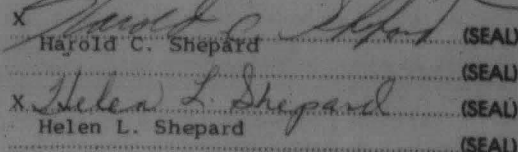 x Harold C Shepard (SEAL)
Harold C. Shepard
(SEAL)
x Helen L. Shepard (SEAL)
Helen L. Shepard
(SEAL)